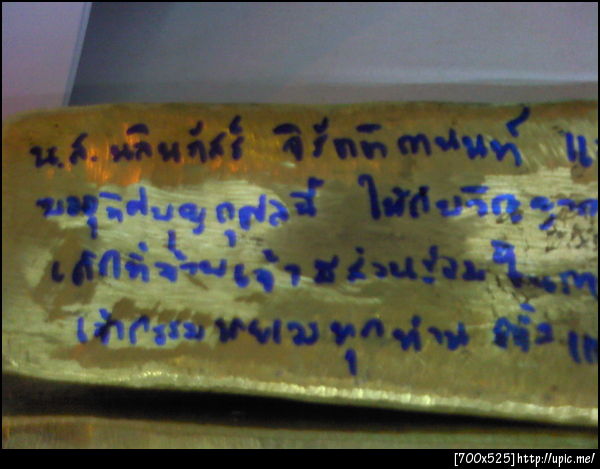 น.ส. นลินภัสร์ จิรัฑฒิกานนท์ แ
ขออุทิศบุญกุศลนี้ ให้กับวิญญาณ
เด็กที่ข้าพเจ้ามีส่วนร่วมในกา
เจ้ากรรมนายเวรทุกท่าน ทั้ง
[700x525]http://upic.me/